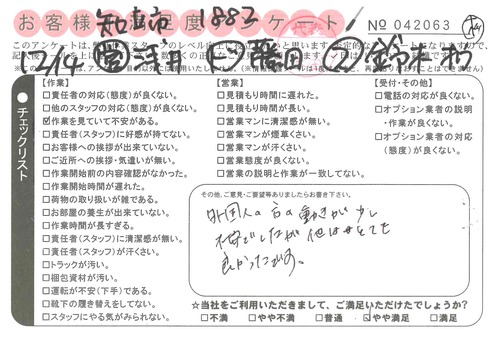 お客様 満足度アンケート
No 042063
知立市 1883
12/14
【作業】
□責任者の対応(態度)が良くない。
□他のスタッフの対応(態度)が良くない。
☑作業を見ていて不安がある。
□責任者(スタッフ)に好感が持てない。
□お客様への挨拶が出来ていない。
□ご近所への挨拶・気遣いが無い。
□作業開始前の内容確認がなかった。
□作業開始時間が遅れた。
□荷物の取り扱いが雑である。
□お部屋の養生が出来ていない。
□作業時間が長すぎる。
□責任者(スタッフ)に清潔感が無い。
□責任者(スタッフ)が汗くさい。
□トラックが汚い。
□梱包資材が汚い。
□運転が不安(下手)である。
□靴下の履き替えをしてない。
□スタッフにやる気がみられない。
【営業】
□見積もり時間に遅れた。
□見積もり時間が長い。
□営業マンに清潔感が無い。
□営業マンが煙草くさい。
□営業マンが汗くさい。
□営業態度が良くない。
□営業の説明と作業が一致してない。
【受付・その他】
□電話の対応が良くない。
□オプション業者の説明
・作業が良くない。
□オプション業者の対応
(態度)が良くない。
チェックリスト
その他、ご意見・ご要望等ありましたらお書き下さい。
外国人の方の動きが少し
不安でしたが 他はとても
良かったです。
☆当社をご利用いただきまして、ご満足いただけたでしょうか?
□不満 □やや不満 □普通 ☑やや満足 □満足